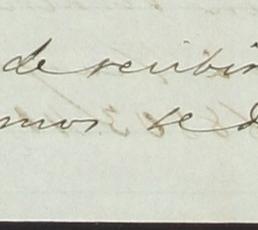 de recibir
mos se d